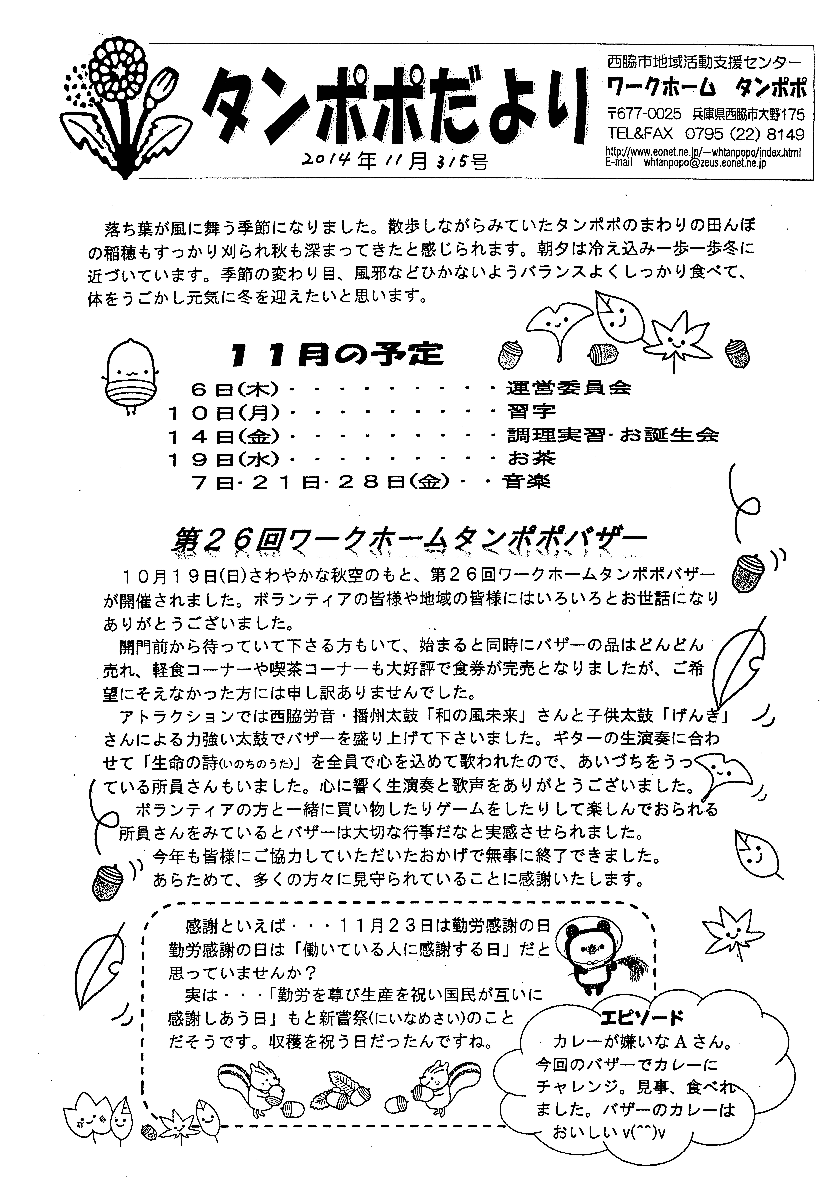 タンポポだより
2014年11月315号
西脇市地域活動支援センター
ワークホーム　タンポポ
〒677-0025　兵庫県西脇市大野175
TEL&FAX　0795 (22) 8149
http://www.eonet.ne.jp/~whtanpopo/index.html
E-mail　whtanpopo@zeus.eonet.ne.jp
落ち葉が風に舞う季節になりました。散歩しながらみていたタンポポのまわりの田んぼ
の稲穂もすっかり刈られ秋も深まってきたと感じられます。朝夕は冷え込み一歩一歩冬に
近づいています。季節の変わり目、風邪などひかないようバランスよくしっかり食べて、
体をうごかし元気に冬を迎えたいと思います。
１１月の予定
６日(木)・・・・・・・・・・運営委員会
１０日(月)・・・・・・・・・・習字
１４日(金)・・・・・・・・・・調理実習・お誕生会
１９日(水)・・・・・・・・・・お茶
７日・２１日・２８日(金)・・音楽
第２６回ワークホームタンポポバザー
１０月１９日(日)さわやかな秋空のもと、第２６回ワークホームタンポポバザー
が開催されました。ボランティアの皆様や地域の皆様にはいろいろとお世話になり
ありがとうございました。
開門前から待っていて下さる方もいて、始まると同時にバザーの品はどんどん
売れ、軽食コーナーや喫茶コーナーも大好評で食券が完売となりましたが、ご希
望にそえなかった方には申し訳ありませんでした。
アトラクションでは西脇労音・播州太鼓「和の風未来」さんと子供太鼓「げんき」
さんによる力強い太鼓でバザーを盛り上げて下さいました。ギターの生演奏に合わ
せて「生命の詩(いのちのうた)」を全員で心を込めて歌われたので、あいづちをうっ
ている所員さんもいました。心に響く生演奏と歌声をありがとうございました。
ボランティアの方と一緒に買い物したりゲームをしたりして楽しんでおられる
所員さんをみているとバザーは大切な行事だなと実感させられました。
今年も皆様にご協力していただいたおかげで無事に終了できました。
あらためて、多くの方々に見守られていることに感謝いたします。
感謝といえば・・・１１月２３日は勤労感謝の日
勤労感謝の日は「働いている人に感謝する日」だと
思っていませんか？
実は・・・「勤労を尊び生産を祝い国民が互いに
感謝しあう日」もと新嘗祭(にいなめさい)のこと
だそうです。収穫を祝う日だったんですね。
エピソード
カレーが嫌いなＡさん。
今回のバザーでカレーに
チャレンジ。見事、食べれ
ました。バザーのカレーは
おいしいv(^^)v